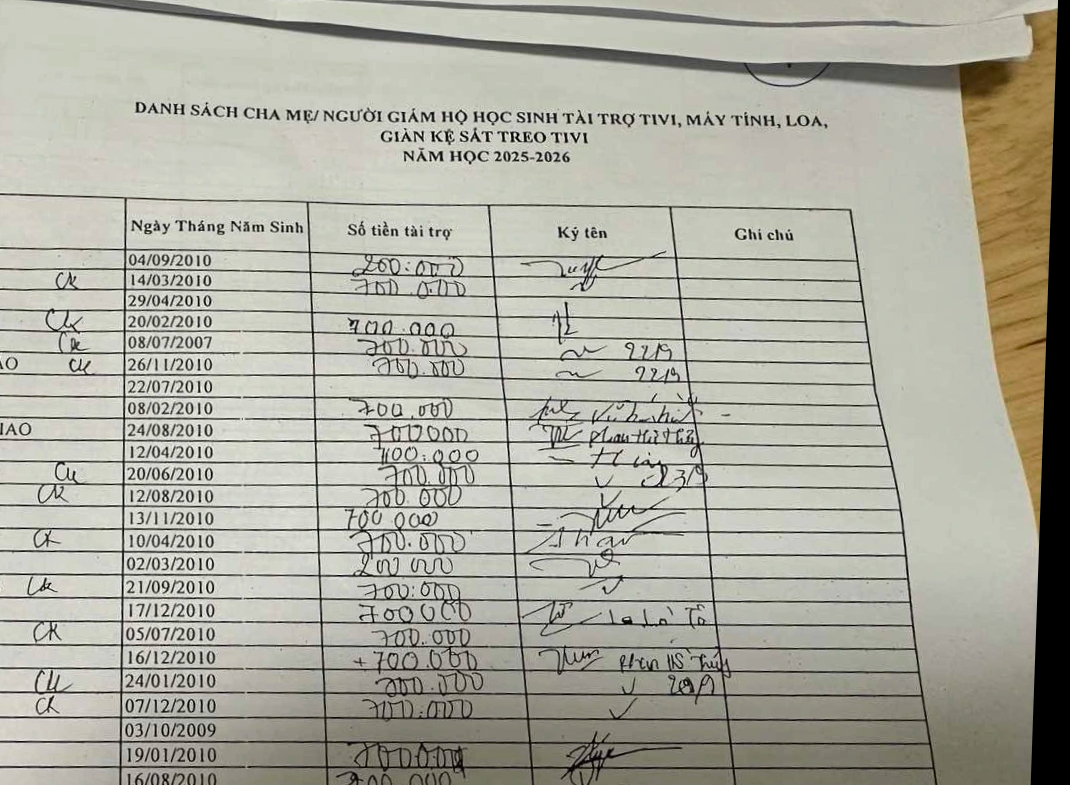 DANH SÁCH CHA MẸ/ NGƯỜI GIÁM HỘ HỌC SINH TÀI TRỢ TIVI, MÁY TÍNH, LOA,
GIÀN KỆ SẮT TREO TIVI
NĂM HỌC 2025-2026
Ngày Tháng Năm Sinh Số tiền tài trợ Ký tên Ghi chú
04/09/2010 200.000
CK 14/03/2010 700.000
29/04/2010
CK 20/02/2010 700.000
CK 08/07/2007 700.000 22/9
AO CK 26/11/2010 700.000 22/9
22/07/2010
08/02/2010 700.000
IAO 24/08/2010 700000
12/04/2010
CK 20/06/2010 700.000 23/9
CK 12/08/2010 700.000
13/11/2010 700.000
CK 10/04/2010 700.000
02/03/2010 200.000
CK 21/09/2010 700.000
17/12/2010 700000
CK 05/07/2010 700.000
16/12/2010 +700.000
CK 24/01/2010
CK 07/12/2010 700.000
03/10/2009
19/01/2010 700.000
16/08/2010